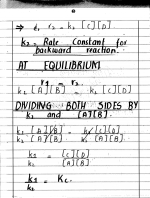 ⇒ r₂ = k₂ [C][D]
k₂ = Rate Constant for
backward reaction.
AT EQUILIBRIUM
r₁ = r₂
k₁ [A][B] = k₂ [C][D]
DIVIDING BOTH SIDES BY
k₂ and [A][B]
k₁ [A][B] = k₂ [C][D]
k₂ [A][B] k₂ [A][B]
k₁ = [C][D]
k₂ [A][B]
k₁ = Kc.
k₂